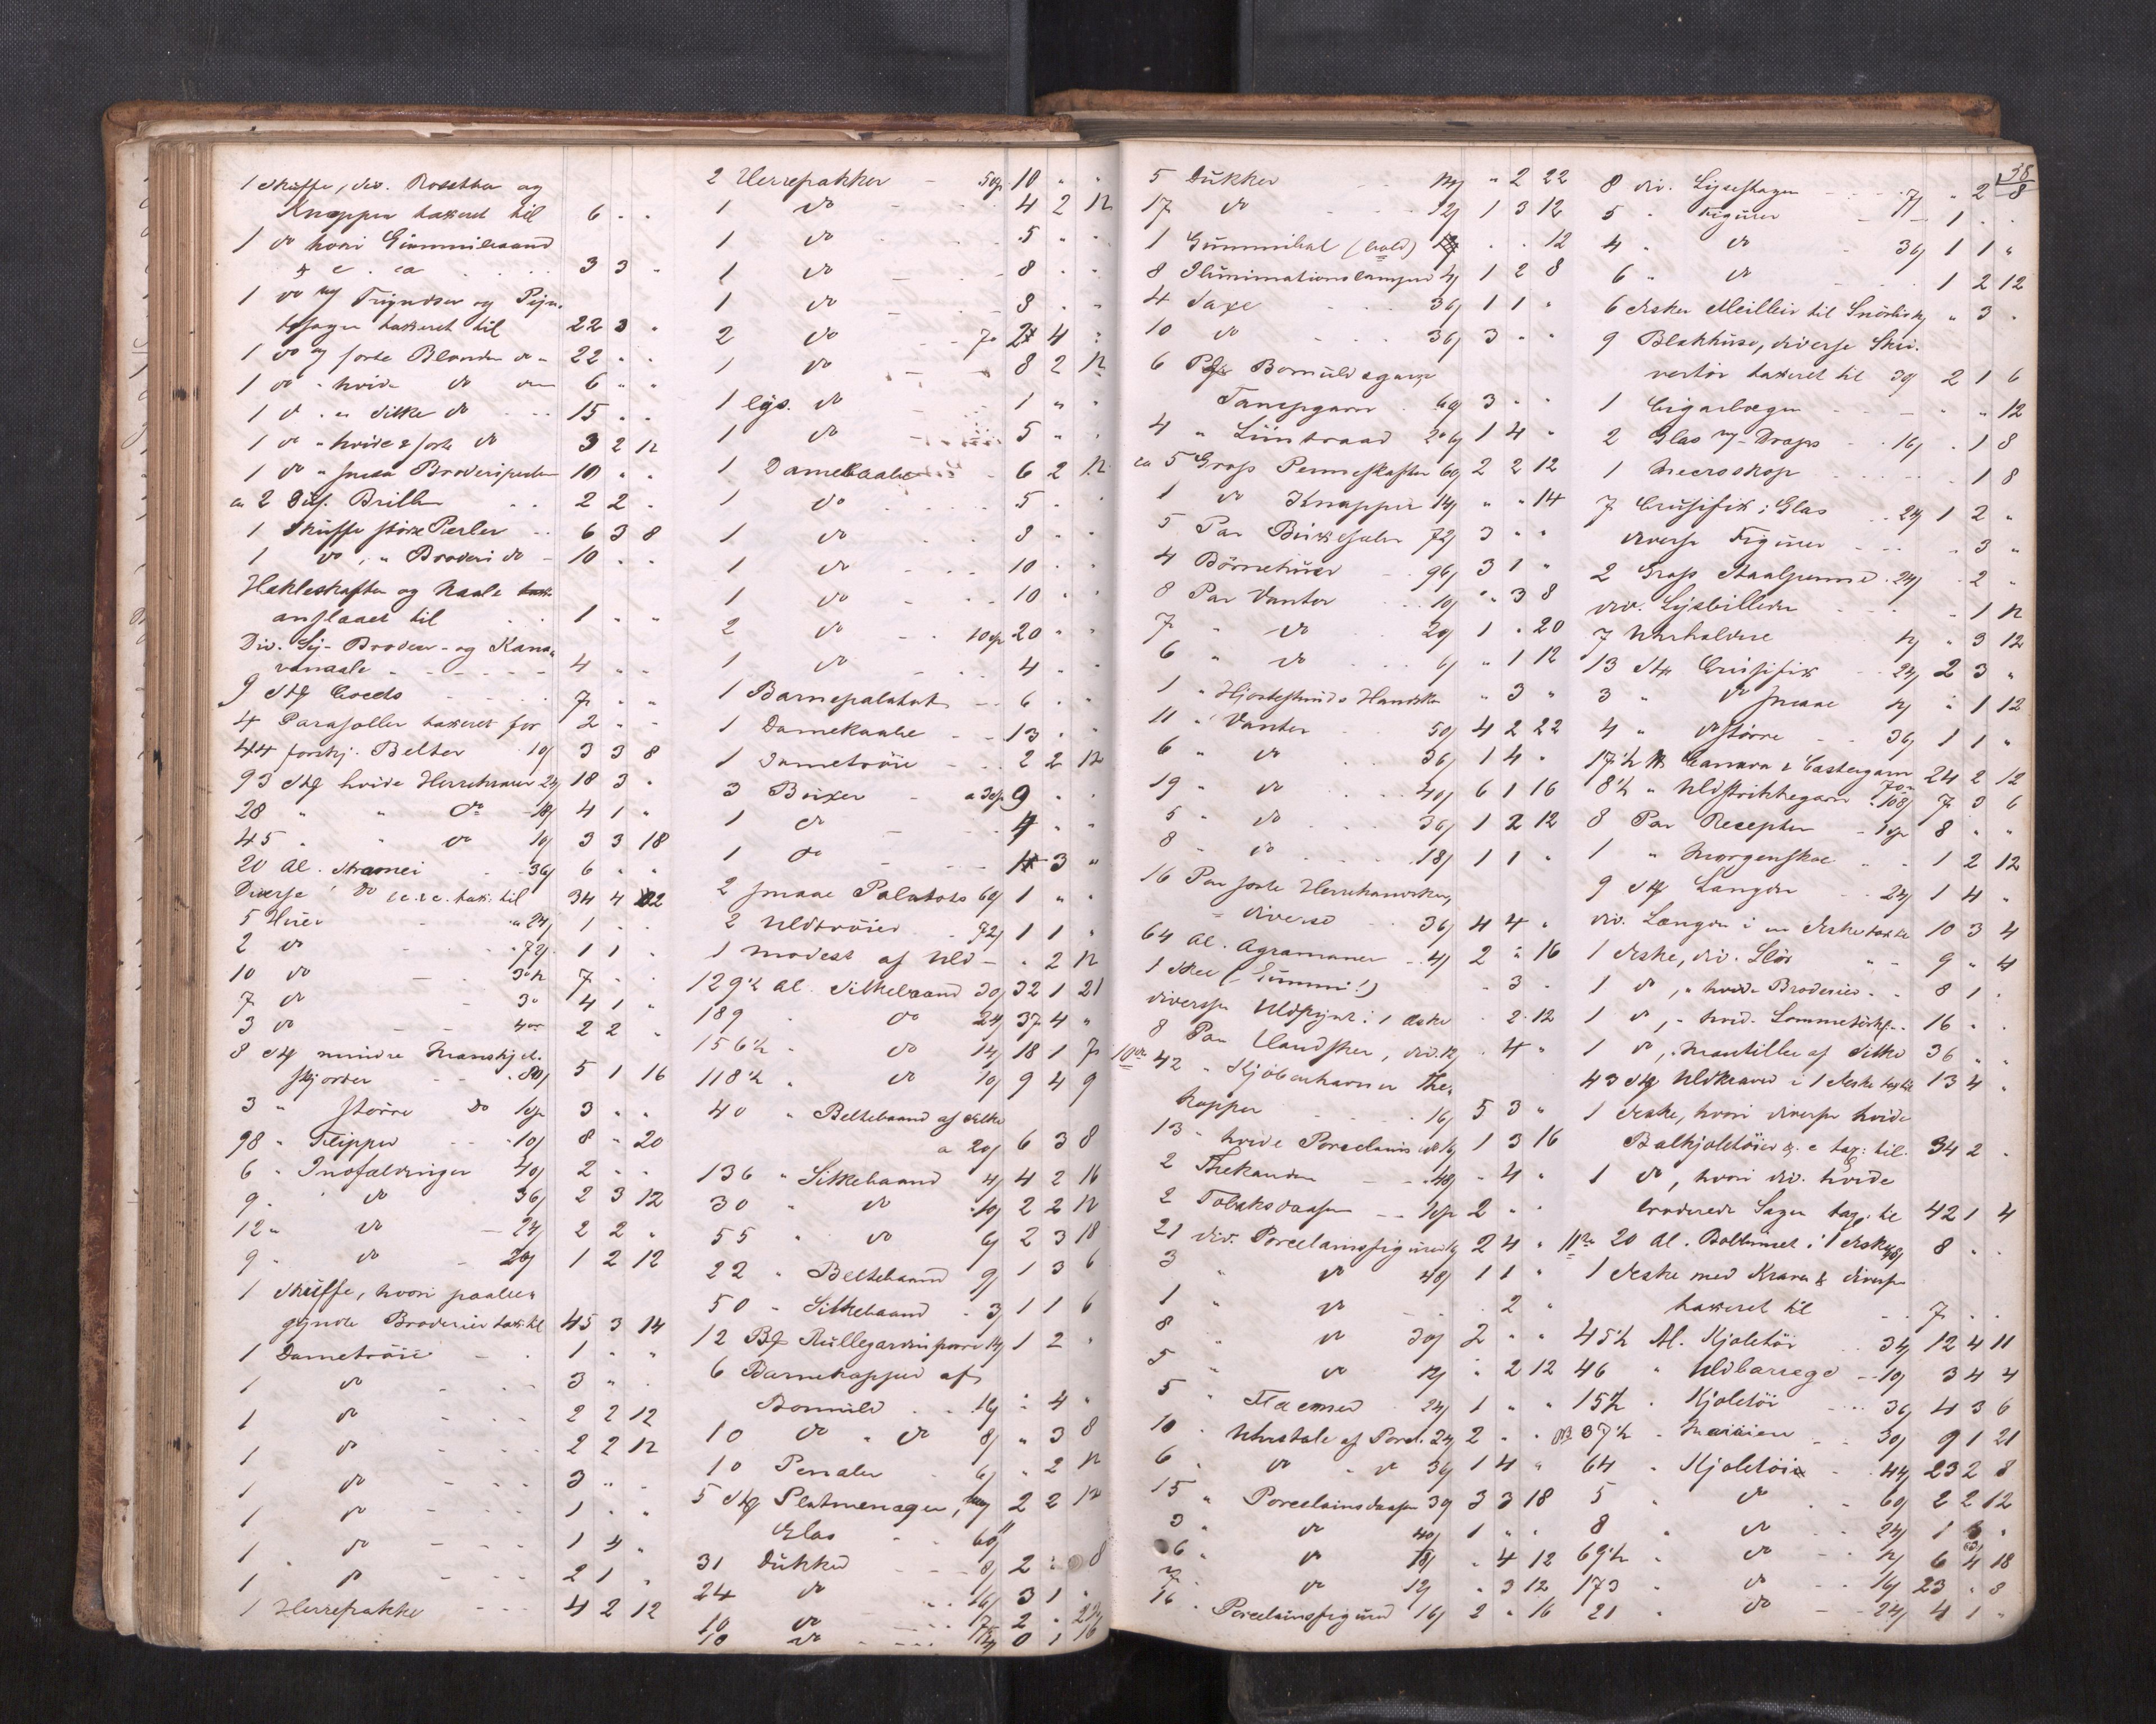 1 Skuffe, div. Rosetter og
Knapper taxeret til 6 " "
1 do hvori Gummibaand
& c. ca 3 3 "
1 do m/ Fryndser og Pyn-
tesager taxeret til 22 3 "
1 do m/ sorte Blonder do 22 " "
1 do " hvide do 6 " "
1 d " Silke do 15 " "
1 do " hvide & sorte do 3 2 12
1 do " smaa Broderiperler 10 " "
ca 2 Dus. Briller 2 2 "
1 Skuffe större Perler 6 3 8
1 do, " Broderi do 10 " "
Hekleskafter og Naale
anslaaet til 1 " "
Div. Sy- Broder- og Kana-
vanaale 4 " "
9 Stk Coeds 7 " "
4 Parasoller taxeret for 2 " "
44 forskj. Belter 10/ 3 3 8
93 Stk hvide Herrekraver 24/ 18 3 "
28 " " do 18/ 4 1 "
45 " " do 10/ 3 3 18
20 Al. Stramei 36/ 6 " "
Diverse do &c. &c. tax. til 34 4 22
5 Huer a 24/ 1 " "
2 do 72/ 1 1 "
10 do 3 1/2 7 " "
7 do 3" 4 1 "
3 do 4" 2 2 "
8 Stk mindre Manskjet-
skjorter 80/ 5 1 16
3 " större do 1 Sp 3 " "
98 " Flipper 10/ 8 " 20
6 " Indfatninger 40/ 2 " "
9 " do 36/ 2 3 12
12 " do 24/ 2 2 "
9 " do 20/ 1 2 12
1 Skuffe, hvori paabe-
gyndte Broderier tax. til 45 3 14
1 Dametröie 1 " "
1 do 3 " "
1 do 2 2 12
1 do 2 2 12
1 do 3 " "
1 do 1 " "
1 do 1 4 "
1 do 2 1 "
1 Herrefrakke 4 2 12
2 Herrefrakker 5 Sp 10 " "
1 do 4 2 12
1 do 5 " "
1 do 8 " "
1 do 8 " "
2 do 4 "
1 do 8 2 12
1 lys. do 1 " "
1 do 5 " "
1 Damekaabe 6 2 12
1 do 5 " "
1 do 8 " "
1 do 10 " "
1 do 10 " "
2 do 10 Sp 20 " "
1 do 4 " "
1 Barnepaletot 6 " "
1 Damekaabe 13 " "
1 Dametröie 2 2 12
3 Buxer a 3 Sp 9 " "
1 do 4 " "
1 do 3 "
2 smaae Paletots 60/ 1 " "
2 Uldtröier 72/ 1 1 "
1 Modest af Uld " 2 12
129 1/2 Al. Silkebaand 30/ 32 1 21
189 do 24/ 37 4 "
156 1/2 " do 14/ 18 1 7
118 1/2 " do 10/ 9 4 9
40 " Beltebaand af Silke
a 20/ 6 3 8
136 " Silkebaand 4/ 4 2 16
30 " do 10/ 2 2 12
55 " do 6/ 2 3 18
22 " Beltebaand 9/ 1 3 6
50 " Silkebaand 3/ 1 1 6
12 Bg Rullegardinsnore 14/ 1 2 "
6 Barnekapper af
Bomuld 16/ " 4 "
10 do " do 8/ " 3 8
10 Penaler 6/ " 2 12
5 Stk Platmenager, m/ 2 2 12
Glas 60/
31 Dukker 8/ 2 " 8
24 do 16/ 3 1 "
10 do 2 "
10 do 0 1 16
5 Dukker " 2 22
17 do 12/ 1 3 12
1 Gummibal (bold) " " 12
8 Iluminationslamper 1 2 8
4 Saxe 36/ 1 1 "
10 do 36/ 3 " "
6 Pk Bomuldsgarn
Tanesgarn 60/ 3 " "
4 " Liintraad 26/ 1 4 "
ca 5 Gross Penneskafter 60/ 2 2 12
1 do Knapper 14/ " " 14
5 Par Buxeseler 72/ 3 " "
4 Börnehuer 96/ 3 1 "
8 Par Vanter 10/ " 3 8
7 " do 20/ 1 " 20
6 " do 6/ " 1 12
1 " Hjorteskinds Handsker " 3 "
11 " Vanter 50/ 4 2 22
6 " do 36/ 1 4 "
19 " do 40/ 6 1 16
5 " do 36/ 1 2 12
8 " do 18/ 1 1 "
16 Par sorte Herrehandsker,
diverse 36/ 4 4 "
64 Al. Agramaner 4/ 2 " 16
1 Skee (Gummi!) " 3 "
diverse Uldpynt i 1 Æske " 2 12
8 Par Handsker, div. 12/ " 4 "
10de 42 " Kjöbenhavner The-
kopper 16/ 5 3 "
13 " hvide Porcelains do 16/ 1 3 16
2 Thekander 48/ " 4 "
2 Tobaksdaaser 1 Sp 2 " "
21 div. Porcelainsfigurer 2 4 "
3 " do 48/ 1 1 "
1 " do " 2 "
8 " do 30/ 2 " "
5 " do 12/ " 2 12
5 " Flaconer 24/ 1 " "
10 " Uhrstole af Porc. 24/ 2 " "
6 " do " do 36/ 1 4 "
15 " Porcelainsdaaser 30/ 3 3 18
3 " do 40/ 1 " "
6 " do 18/ " 4 12
7 " do 12/ " 3 12
16 " Porcelainsfigurer 16/ 2 " 16
38
8 div. Lysestager 7/ " 2 8
5 " Figurer 1 " "
4 " do 36/ 1 1 "
6 " do 1 2 12
6 Æsker Meilleir til Snörliv " 3 "
9 Blækhuse, diverse Skri-
vertöi taxeret til 30/ 2 1 6
1 Cigarbæger " " 12
2 Glas m/ Drops 16/ " 1 8
1 Mecroskop " 1 8
7 Crusifix i Glas 24/ 1 2 "
diverse Figurer " 3 "
2 Gross Staalpenne 24/ " 2 "
div. Lysbilleder " 1 12
7 Uhrholdere 12/ " 3 12
13 Stk Crusifix 24/ 2 3 "
3 " do smaae 12/ " 1 12
4 " do större 36/ 1 1 "
17 1/2 " Canava & Castergarn 70/ 24 2 12
8 1/2 " Uldstrikkegarn 108/ 7 3 6
8 Par Recepter 1 Sp 8 " "
1 " Morgenskoe 1 2 12
9 Stk Længder 24/ 1 4 "
div. Længder i en Æske taxt. 10 3 4
1 Æske, div. Slör 9 " 4
1 do, " hvide Broderier 8 1 "
1 do, " hvid. Lommetörkl. 16 " "
1 do, Mantiller af Silke 36 " "
43 Stk Uldkraver i 1 Æske tax til 13 4 "
1 Æske, hvori diverse hvide
Balkjoletöier &. c tax: til 34 2 "
1 do, hvori div. hvide
broderede Sager tax. til 42 1 4
11te 20 Al. i 1 Æske 48/ 8 " "
1 Æske med Kraver & diverse
taxeret til 7 " "
45 1/2 Al. Kjoletöi 34/ 12 4 11
46 " Uldbarege 10/ 3 4 4
15 1/2 " Kjoletöi 36/ 4 3 6
37 1/2 " 30/ 9 1 21
64 " Kjoletöi 44/ 23 2 8
5 " do 60/ 2 2 12
8 " do 24/ 1 "
69 1/2 " do 12/ 6 4 18
173 " do 16/ 23 " 8
21 " do 24/ 4 1 "